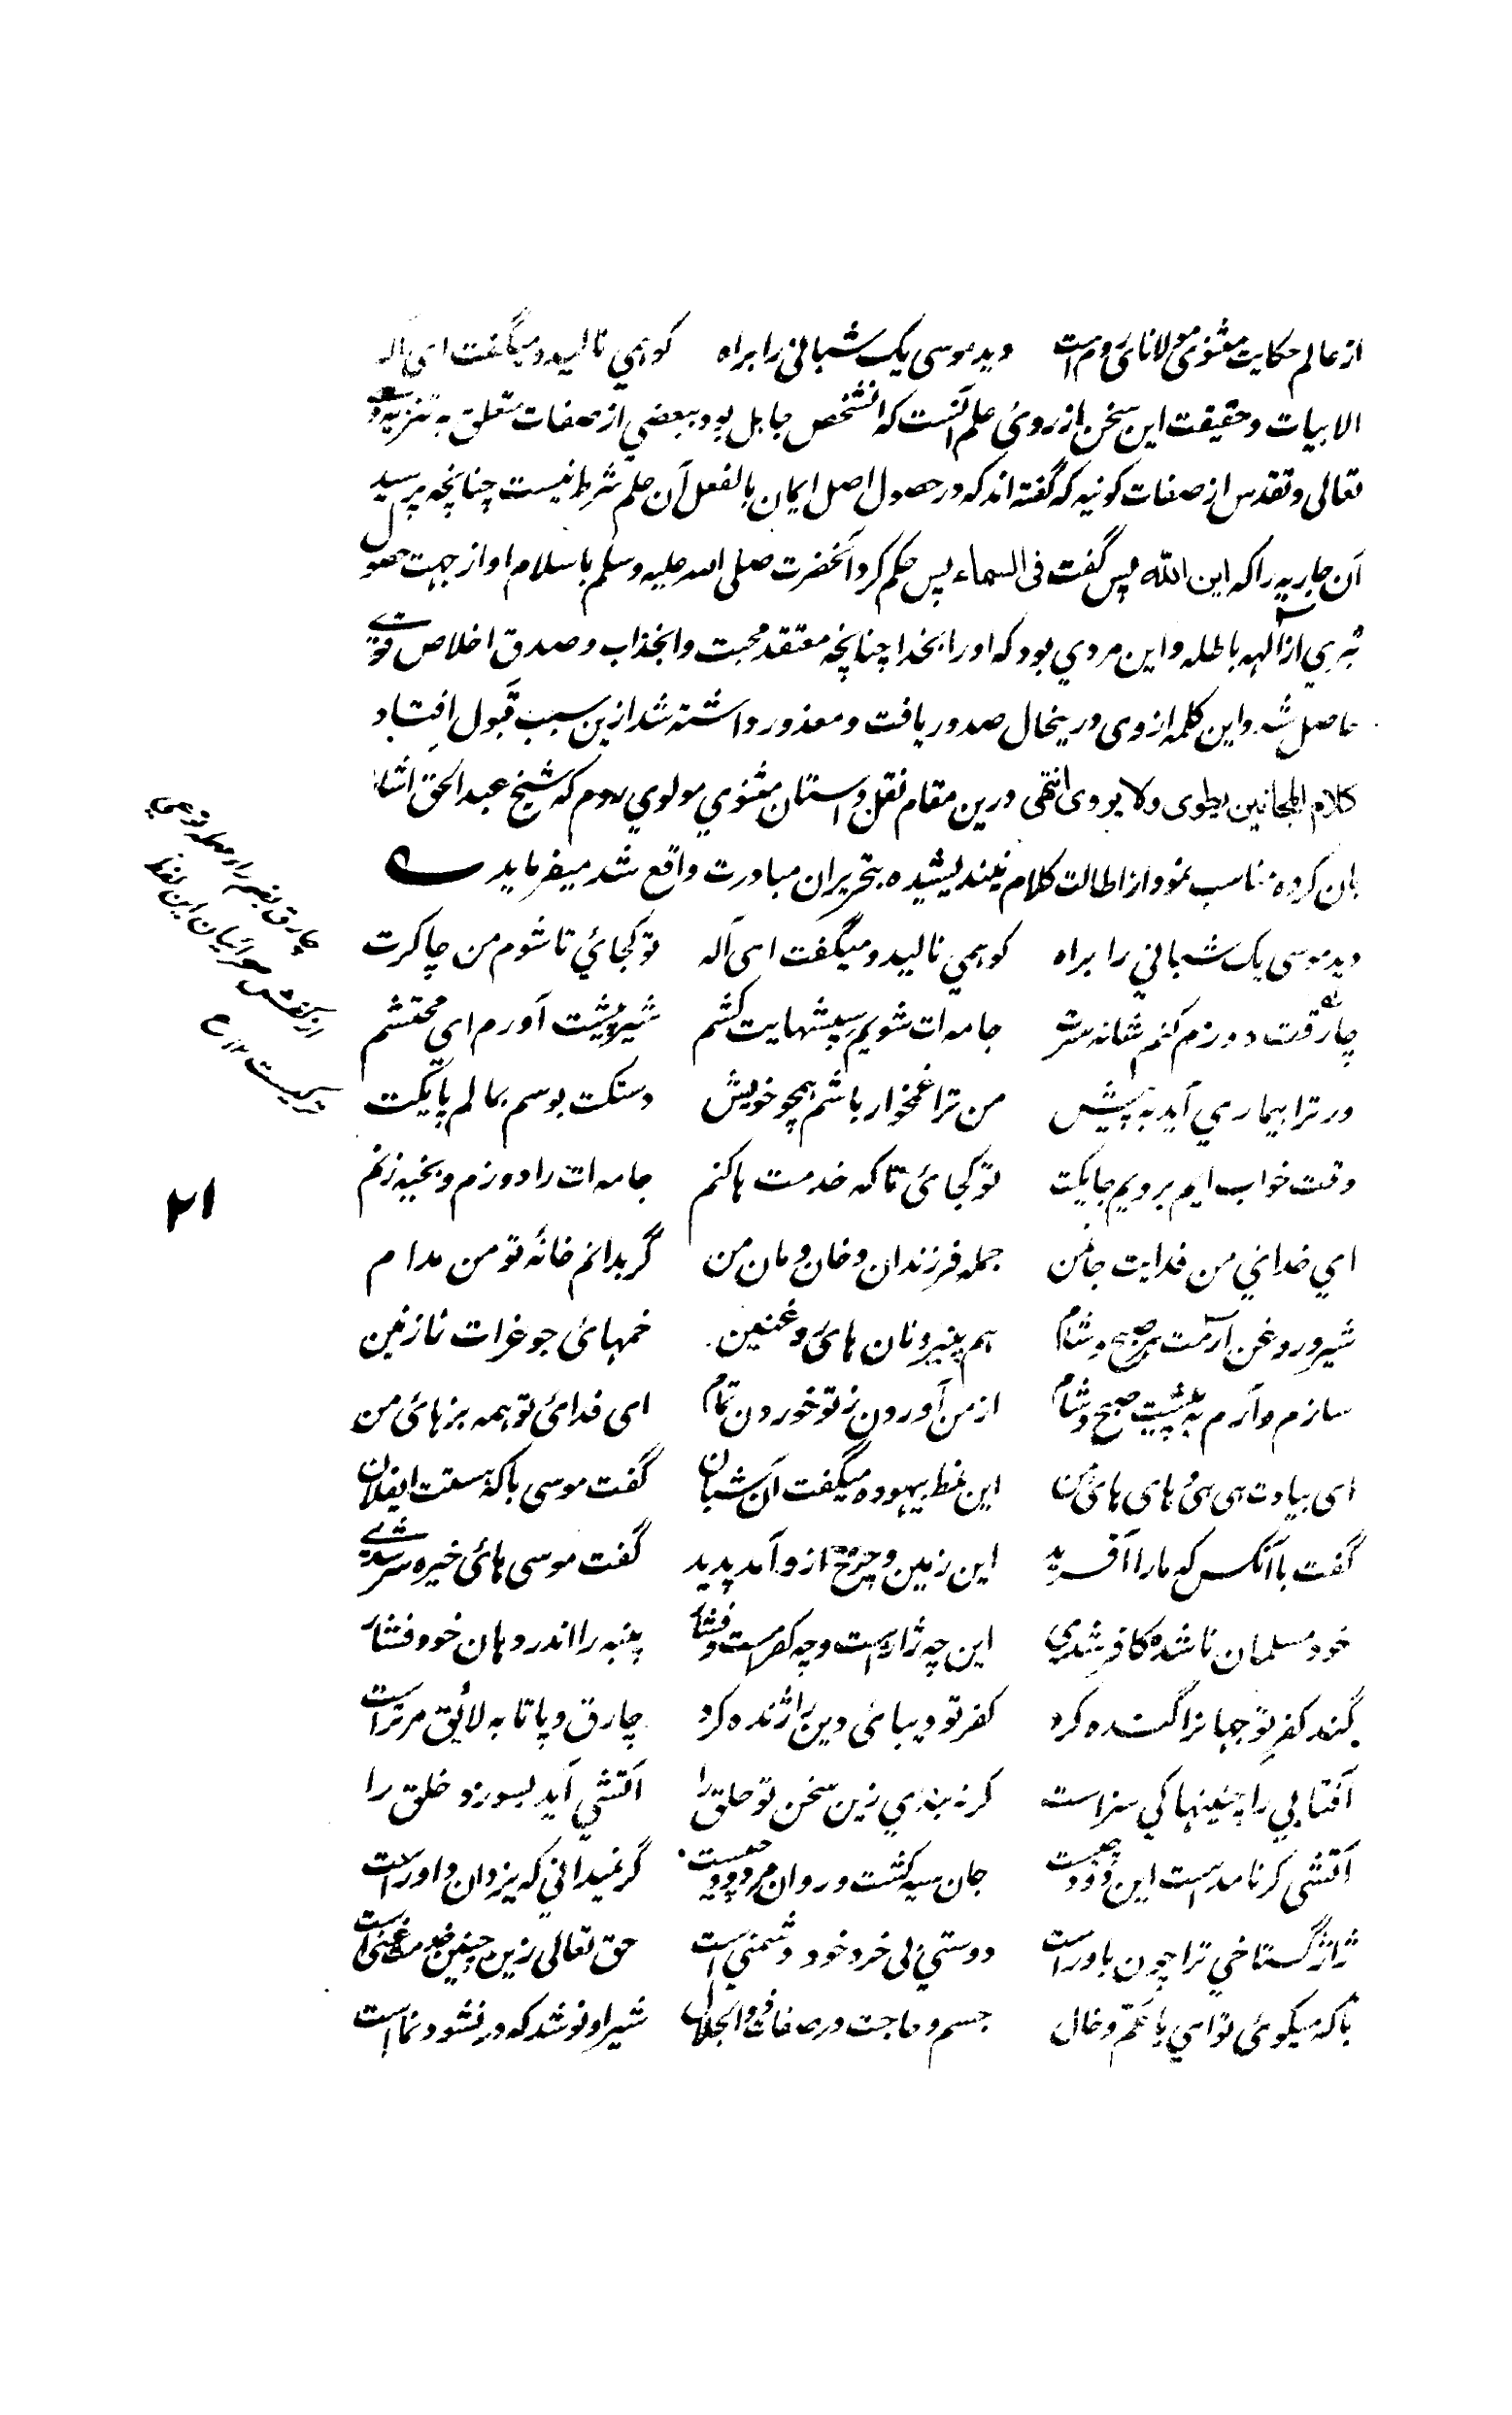 از عالم حکایت مثنوی مولانای روم است دید موسی یک شبانی را براه کو همی نالید و میگفت ای اله
الابیات و حقیقت این سخن از روی علم آنست که آنشخص جاهل بود ببعضی از صفات متعلق به تنزیه او
تعالی و تقدس از صفات کونیه که گفته اند که در حصول اصل ایمان بالفعل آن علم شرط نیست چنانچه پرسید
آن جاریه را که این الله پس گفت فی السماء پس حکم کرد آنحضرت صلی الله علیه وسلم باسلام او از جهت حصول
تبری از آلهه باطله و این مردی بود که او را بخدا چنانچه معتقد محبت و انجذاب و صدق اخلاص قوی
حاصل شد و این کلمه از وی درینحال صدور یافت و معذور داشته شد ازین سبب قبول افتاد
کلام المجانین یطوی ولا یروی انتهی درین مقام نقل داستان مثنوی مولوی روم که شیخ عبدالحق اشاره
بان کرده مناسب نمود از اطالت کلام نیندیشیده بتحریر ان مبادرت واقع شد میفرماید
دید موسی یک شبانی را براه کو همی نالید و میگفت ای اله تو کجائی تا شوم من چاکرت
چارقت دوزم کنم شانه سرت جامه ات شویم سپشهایت کشم شیر پیشت آورم ای محتشم
ور ترا بیماری آید به پیش من ترا غمخوار باشم همچو خویش دستکت بوسم بمالم پایکت
وقت خواب اید بروبم جایکت تو کجائی تا که خدمت ها کنم جامه ات را دوزم و بخیه زنم
ای خدائی من فدایت جان من جمله فرزندان و خان و مان من گر بدانم خانهٔ تو من مدام
شیر و روغن آرمت هر صبح و شام هم پنیر و نان هائ روغنین خمهائ جوغرات نازنین
سازم و آرم به پیشت صبح و شام از من آوردن ز تو خوردن تمام ای فدائ تو همه بزهائ من
ای بیادت هی هی و های هائ من این نمط بیهوده میگفت آن شبان گفت موسی با که استت ایفلان
گفت با آنکس که ما را آفرید این زمین و چرخ ازو آمد پدید گفت موسی هائ خیره سر شدی
خود مسلمان ناشده کافر شدی این چه ژاژ است و چه کفر است و فشار پنبه را اندر دهان خود فشار
گند کفر تو جهانرا گنده کرد کفر تو دیبائ دین را ژنده کرد چارق و پاتابه لائق مر تراست
آفتابی را چنینها کی سزاست گر نه بندی زین سخن تو حلق را آتشی آید بسوزد خلق را
آتشی گر نامد است این دود چیست جان سیه گشت و روان مردود چیست گر نمیدانی که یزدان داور است
ژاژ گستاخی ترا چون باور است دوستی بی خرد خود دشمنی است حق تعالی زین چنین خدمت غنی است
با که میگوئ تو این با عم و خال جسم و حاجت در صفات ذو الجلال شیر او نوشد که در نشو و نما است
چارق بضم را
صحرائیان این لفظ
ترکیست
۲۱